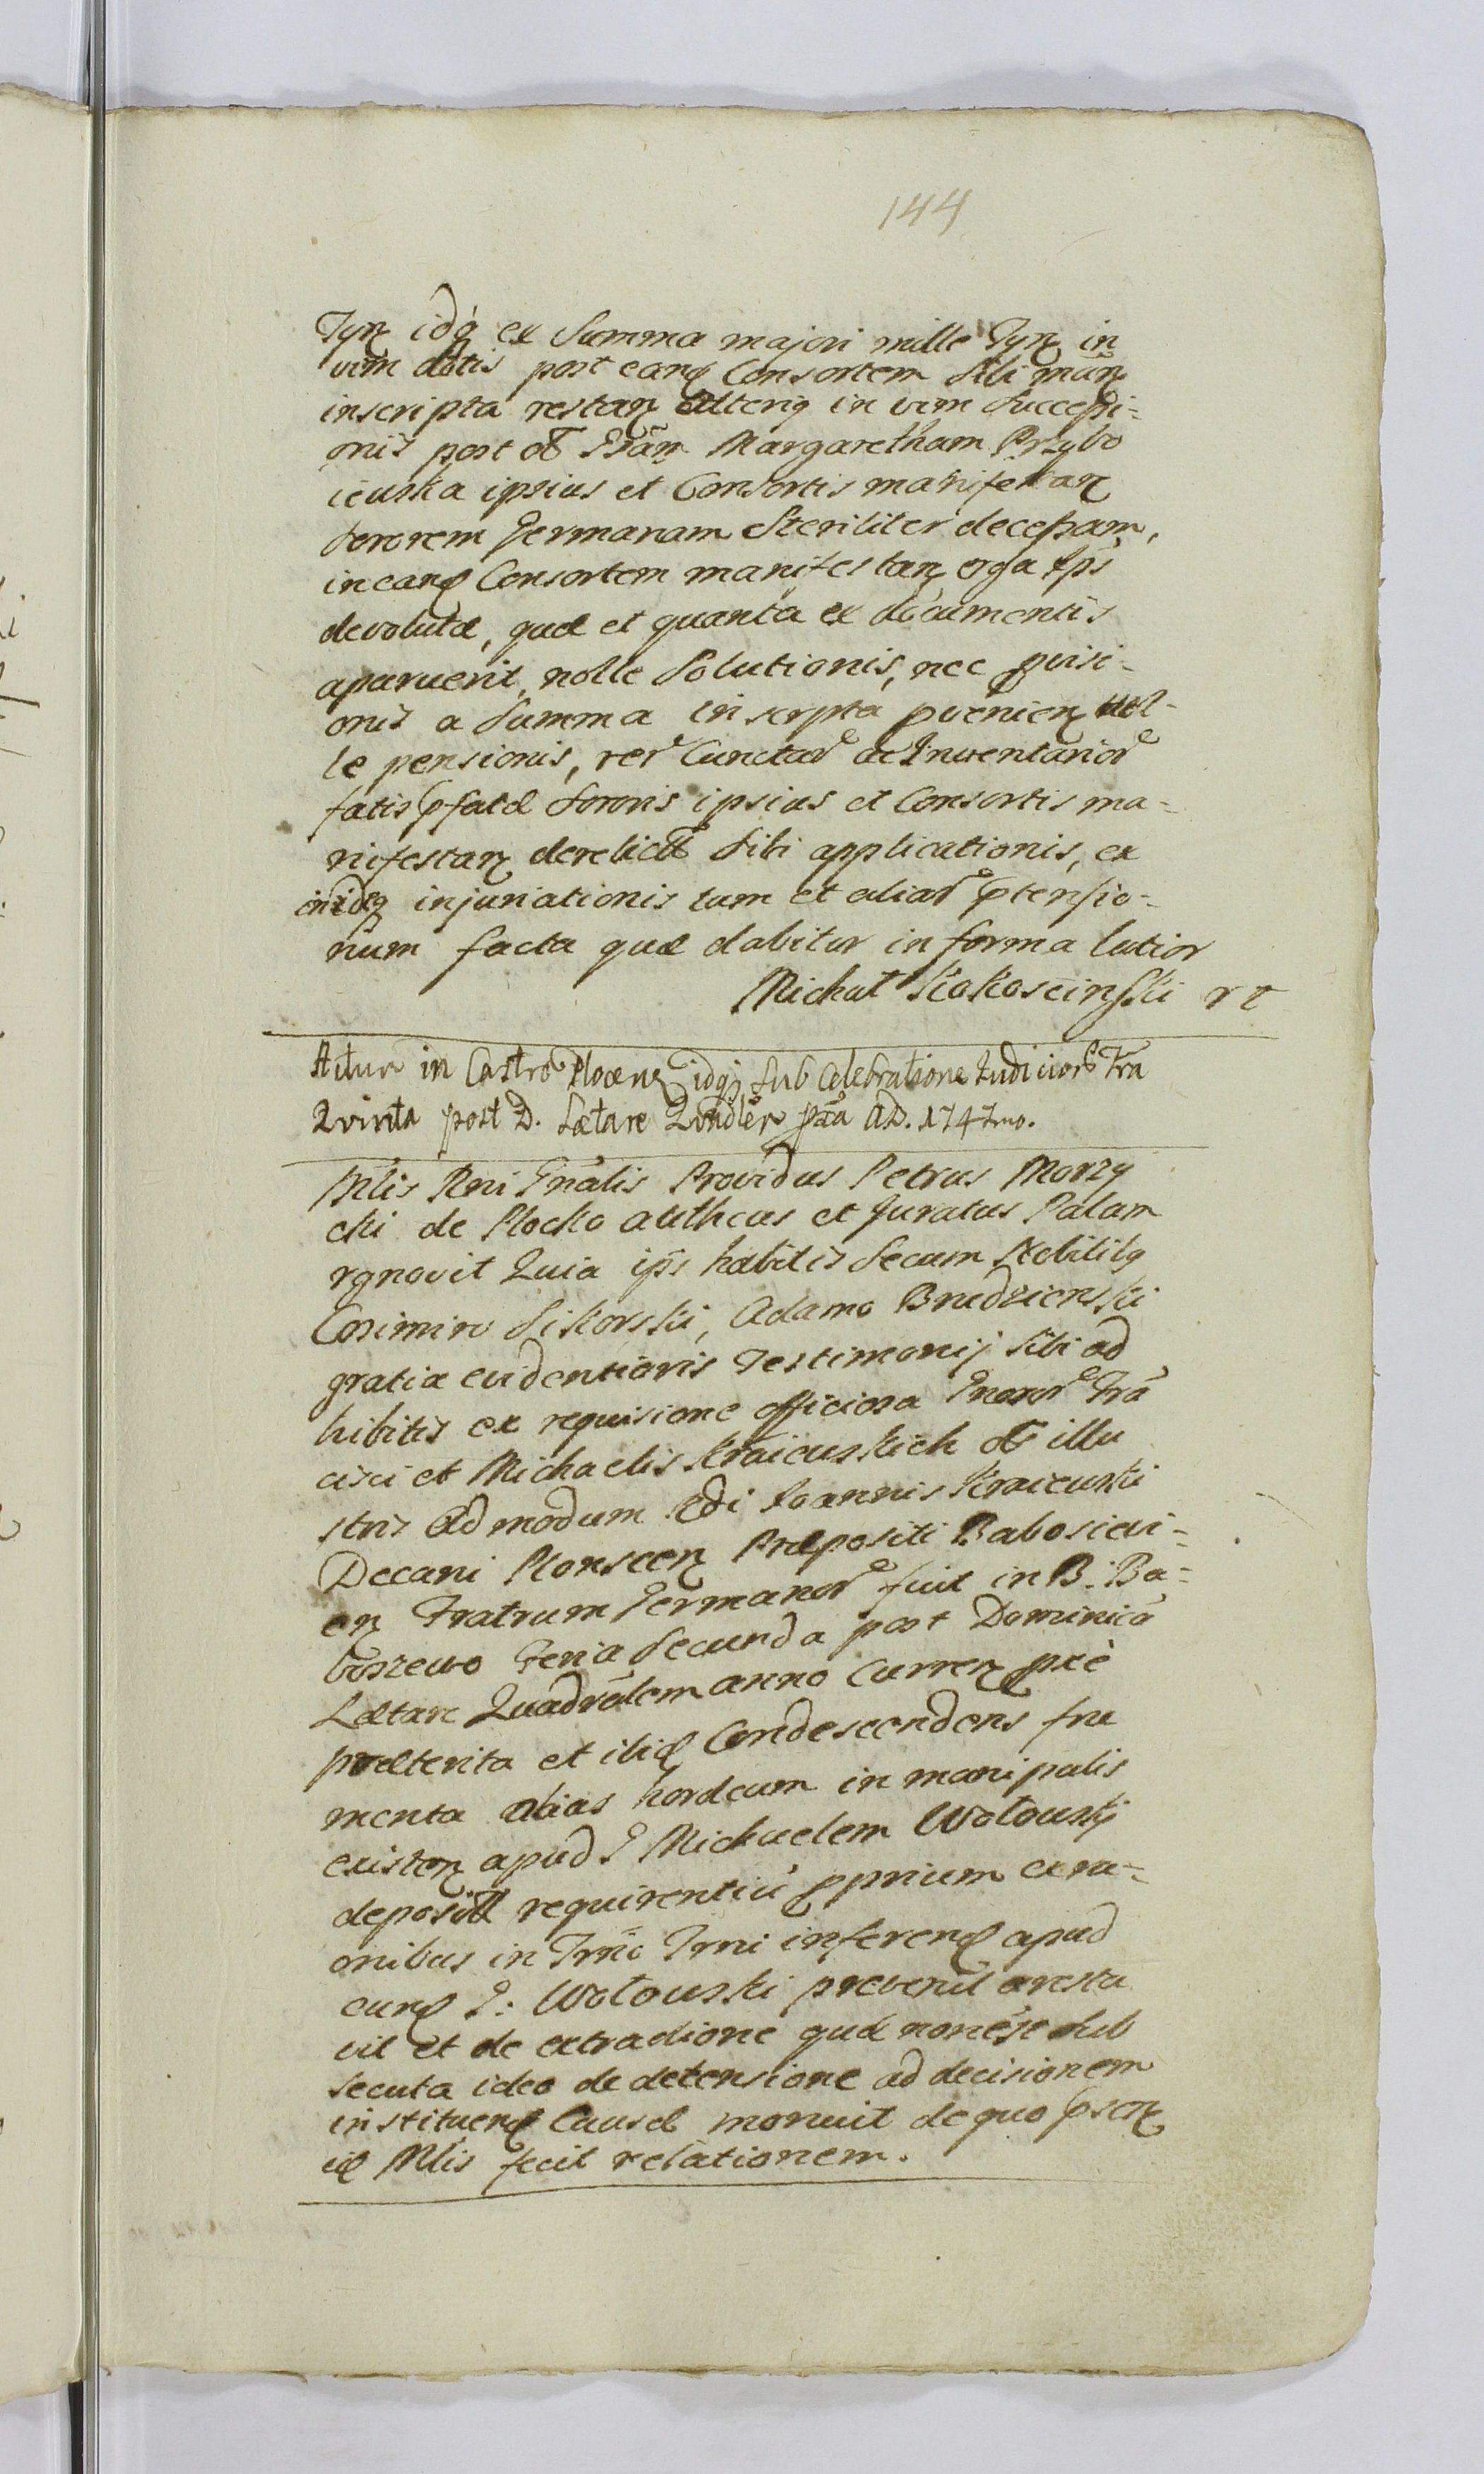 144
Tyn idq ex Summa majori mille Tyn in
vim dotis post eand Consortem Sibi man
inscripta restan alteriq in vim Successi-
onis post ol Evam Margaretham Przybo
iewska ipsius et Consortis manifestan
sororem germanam Steriliter decessam,
in eand Consortem manifestan erga ips
devolutæ, quæ et quanta ex documentis
aparuerit, nolle Solutionis, nec provisi-
onis a Summa inscrpta provenien nol-
le pensionis, rer Cunctar ac Inventarior
fatis pfatæ Sororis ipsius et Consortis ma-
nifestan derelict Sibi applicationis, ex
injuriationis tum et aliar ptensio-
num facta quæ dabitur in forma latior
Michał Kokoscinski
Actum in Castro Plocen idq Sub Celebratione Judicior Fra
Quinta post D. Lætare Qundler pxa AD. 1747mo.
Mlis Rni Gnalis Providus Petrus Morzy
cki de Plocko authcus et Juratus Palam
rgnovit Quia ips habitis Secum Nobilibq
Casimiro Sikorski, Adamo Brudzienski
gratia evidentioris Testimonij Sibi ad
hibitis ex requisione officiosa Gnosor Fra
cisci et Michaelis Kraiewskich ol illu
stris Admodum Rdi Joannis Kraiewski
Decani Plonscen Præpositi Babosievi-
en Fratrum Germanor fuit in B. Ba-
boszewo Feria Secunda post Dominica
Lætare Quadralem anno Curren pxe
præterita et ibiq Condescendens fru
menta alias hordeum in manipulis
existen apud G Michaelem Wołowski
deposit requirentiu pprium
onibus in Trno Trni inferend apud
eund G: Wołowski prevenit aresta
vit et de extradione quæ non esse sub
secuta ideo de detensione ad decisionem
instituend Causæ monuit de quo psen
id Mlis fecit relationem.